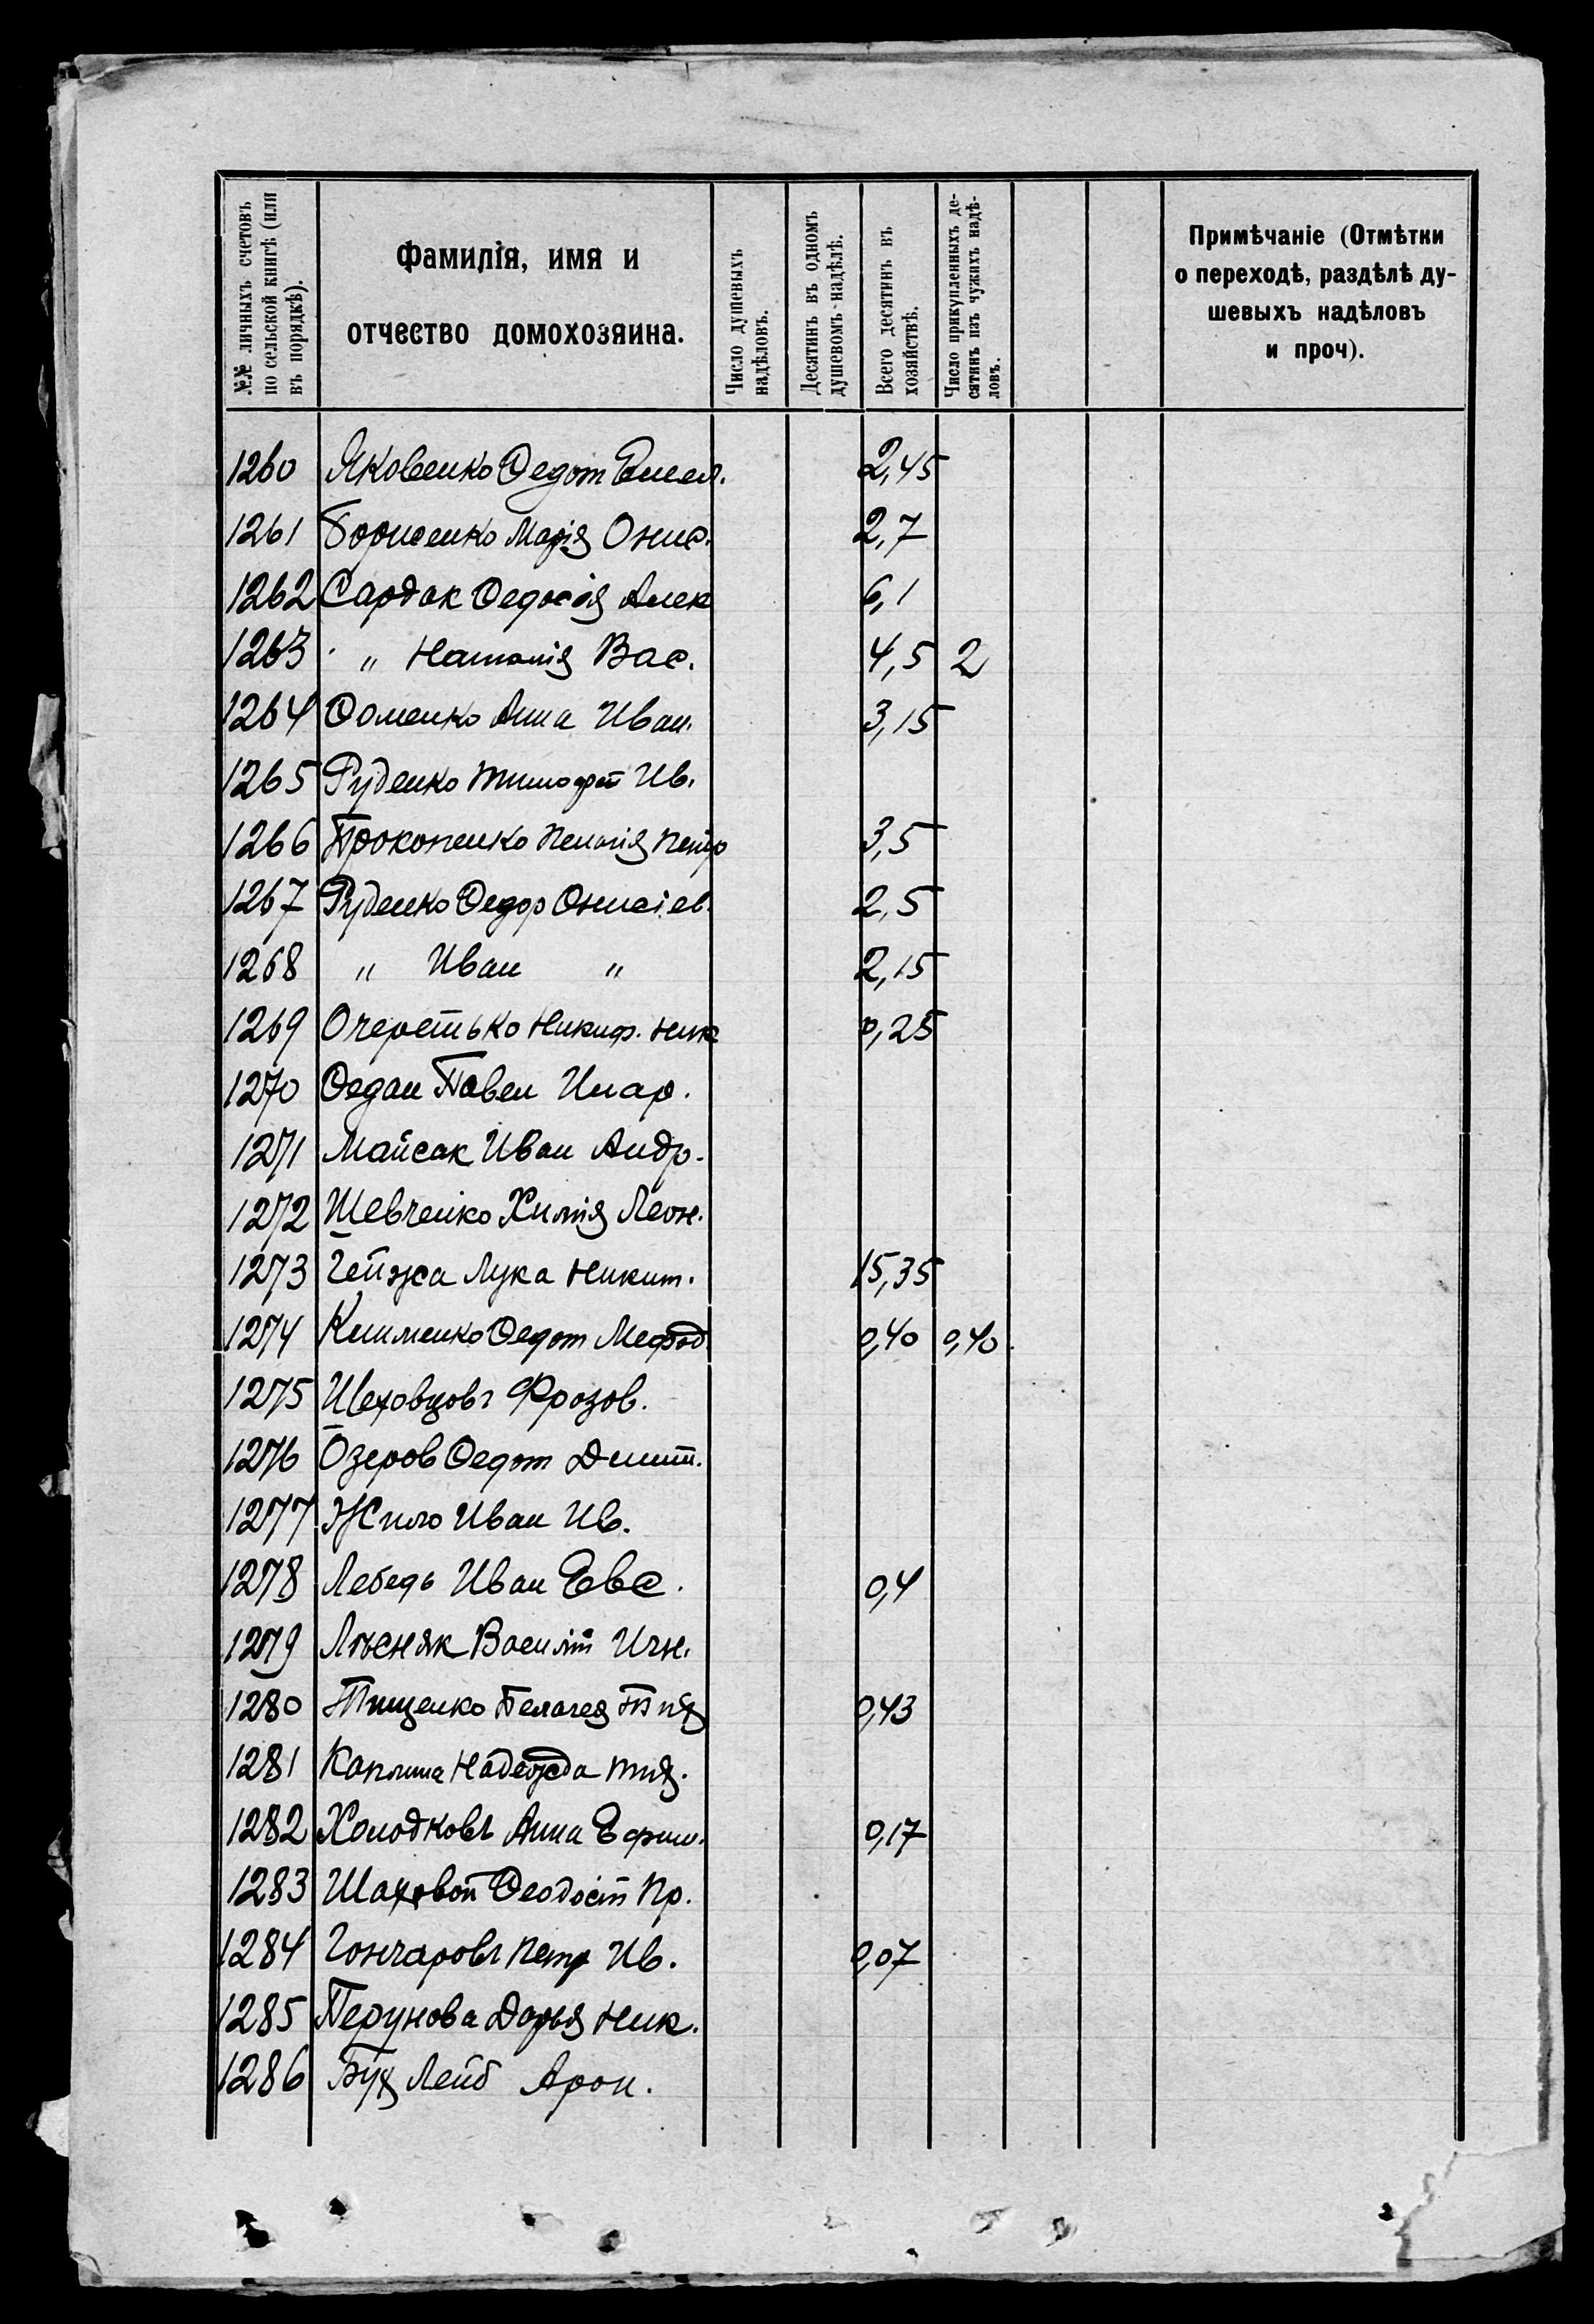 №№ личныхъ счетовъ
по сельской книгѣ (или
въ порядкѣ).
Фамилія, имя и
отчество домохозяина.
Число душевыхъ
надѣловъ.
Десятинъ въ одномъ
душевомъ надѣлѣ.
Всего десятинъ въ
хозяйствѣ.
Число прикупленныхъ де-
сятинъ изъ чужихъ надѣ-
ловъ.
Примѣчаніе (Отмѣтки
о переходѣ, раздѣлѣ ду-
шевыхъ надѣловъ
и проч).
1260 Яковенко Ѳедот Емел. 2,45
1261 Борисенко Марія Онис. 2,7
1262 Сардак Ѳедосія Алек 6,1
1263 " Наталія Вас. 4,5 2
1264 Ѳоменко Анна Иван. 3,15
1265 Руденко Тимофей Ив.
1266 Прокопенко Петр 3,5
1267 Руденко Ѳедор Онисіев. 2,5
1268 " Иван " 2,15
1269 Очеретько Никиф. Ник 0,25
1270 Ѳедан Павел Илар.
1271 Майсак Иван Андр.
1272 Шевченко Леон.
1273 Гейжа Лука Никит. 15,35
1274 Клименко Ѳедот Мефод. 0,40 0,40
1275 Шеховцовъ Фрозов.
1276 Озеров Ѳедот Дмит.
1277 Жило Иван Ив.
1278 Лебедь Иван Евс. 0,4
1279 Лѣсняк Василій Игн.
1280 Тищенко Пелагея 0,43
1281 Надежда
1282 Холодковъ Анна Ефим. 0,17
1283 Шаховой Ѳеодосій Пр.
1284 Гончаровъ Петр Ив. 0,07
1285 Перунова Дарья Ник.
1286 Лейб Арон.